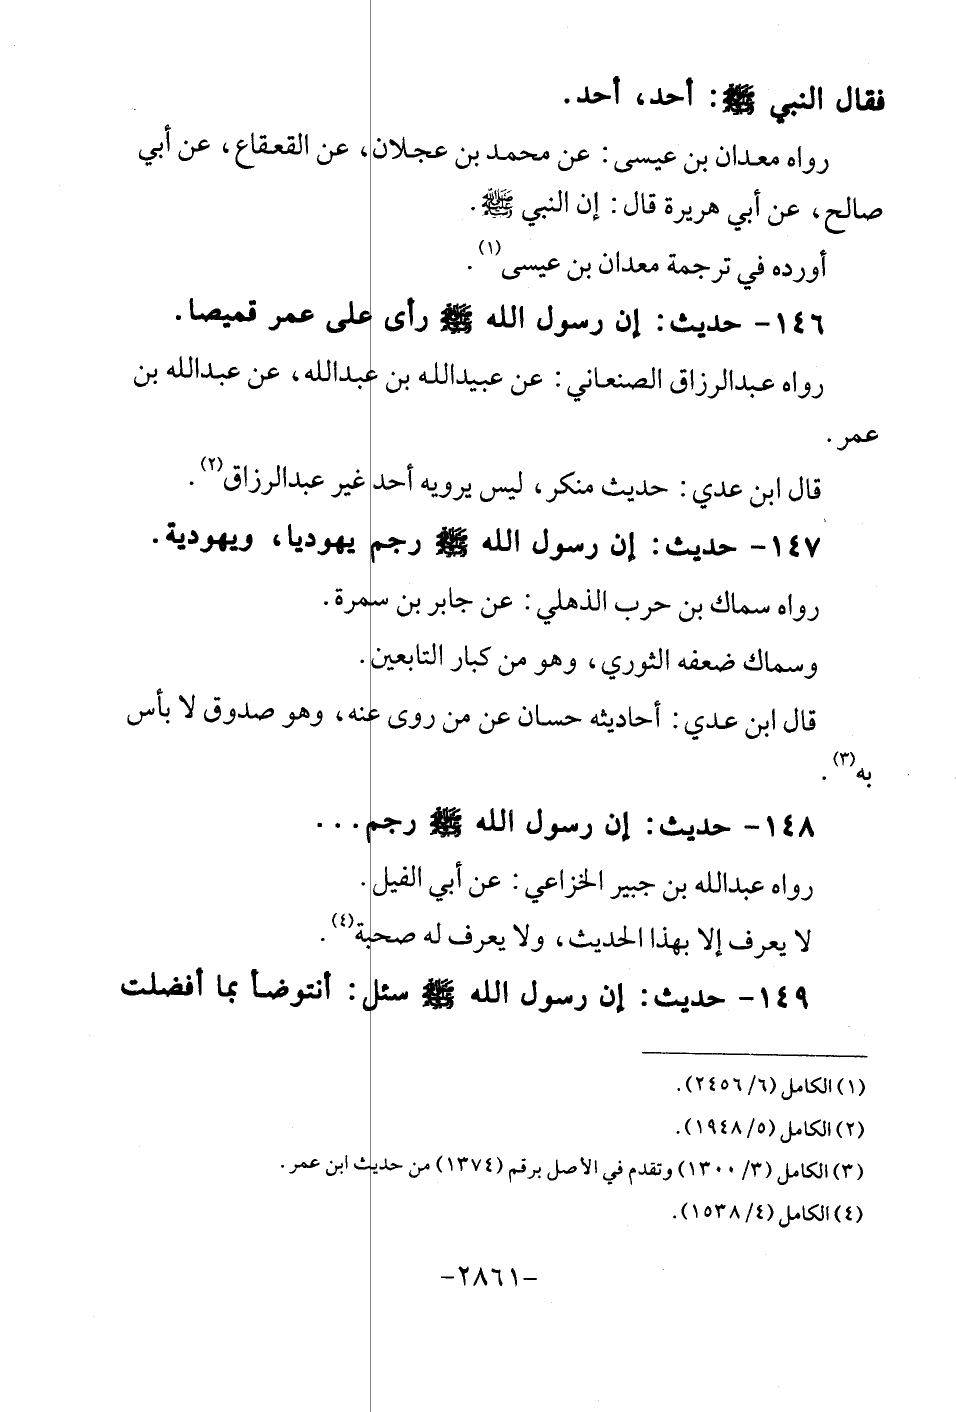 فقال النبي ﷺ: أحد، أحد.
رواه معدان بن عيسى: عن محمد بن عجلان، عن القعقاع، عن أبي
صالح، عن أبي هريرة قال: إن النبي ﷺ.
أورده في ترجمة معدان بن عيسى(١).
١٤٦- حديث: إن رسول الله ﷺ رأى على عمر قميصا.
رواه عبدالرزاق الصنعاني: عن عبيدالله بن عبدالله، عن عبدالله بن
عمر.
قال ابن عدي: حديث منكر، ليس يرويه أحد غير عبدالرزاق(٢).
١٤٧- حديث: إن رسول الله ﷺ رجم يهوديا، ويهودية.
رواه سماك بن حرب الذهلي: عن جابر بن سمرة.
وسماك ضعفه الثوري، وهو من كبار التابعين.
قال ابن عدي: أحاديثه حسان عن من روى عنه، وهو صدوق لا بأس
به(٣).
١٤٨- حديث: إن رسول الله ﷺ رجم...
رواه عبدالله بن جبير الخزاعي: عن أبي الفيل.
لا يعرف إلا بهذا الحديث، ولا يعرف له صحبة(٤).
١٤٩- حديث: إن رسول الله ﷺ سئل: أنتوضأ بما أفضلت
(١) الكامل (٦/ ٢٤٥٦).
(٢) الكامل (٥/ ١٩٤٨).
(٣) الكامل (٣/ ١٣٠٠) وتقدم في الأصل برقم (١٣٧٤) من حديث ابن عمر.
(٤) الكامل (٤/ ١٥٣٨).
-٢٨٦١-